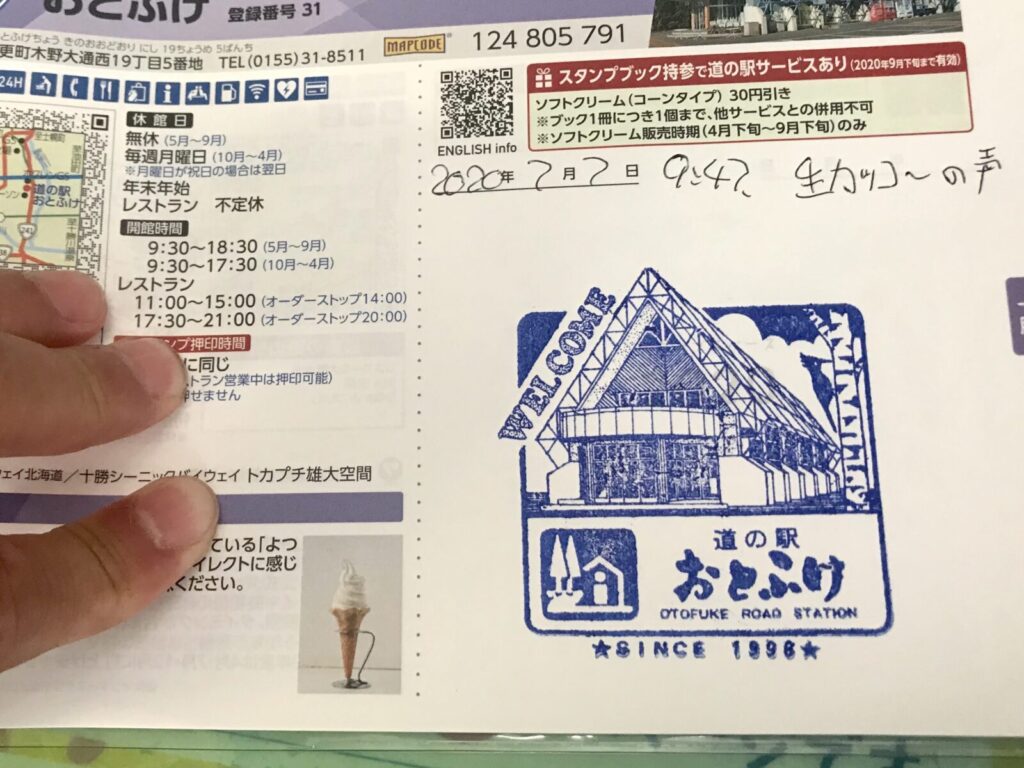 おとふけ 登録番号 31
とふけちょう きのおおどおり にし 19ちょうめ 5ばんち
更町木野大通西19丁目5番地 TEL(0155)31-8511 MAPCODE 124 805 791
24H
休館日
無休(5月～9月)
毎週月曜日(10月～4月)
※月曜日が祝日の場合は翌日
年末年始
レストラン 不定休
開館時間
9:30～18:30(5月～9月)
9:30～17:30(10月～4月)
レストラン
11:00～15:00(オーダーストップ14:00)
17:30～21:00(オーダーストップ20:00)
ンプ押印時間
に同じ
ストラン営業中は押印可能)
押せません
ウェイ北海道/十勝シーニックバイウェイ トカプチ雄大空間
ている「よつ
イレクトに感じ
ください。
道の駅
おとふけ
241
ENGLISH info
スタンプブック持参で道の駅サービスあり(2020年9月下旬まで有効)
ソフトクリーム(コーンタイプ) 30円引き
※ブック1冊につき1個まで、他サービスとの併用不可
※ソフトクリーム販売時期(4月下旬～9月下旬)のみ
2020年 7月7日 9:47、生カッコーの声
WELCOME
道の駅
おとふけ
OTOFUKE ROAD STATION
★SINCE 1996★